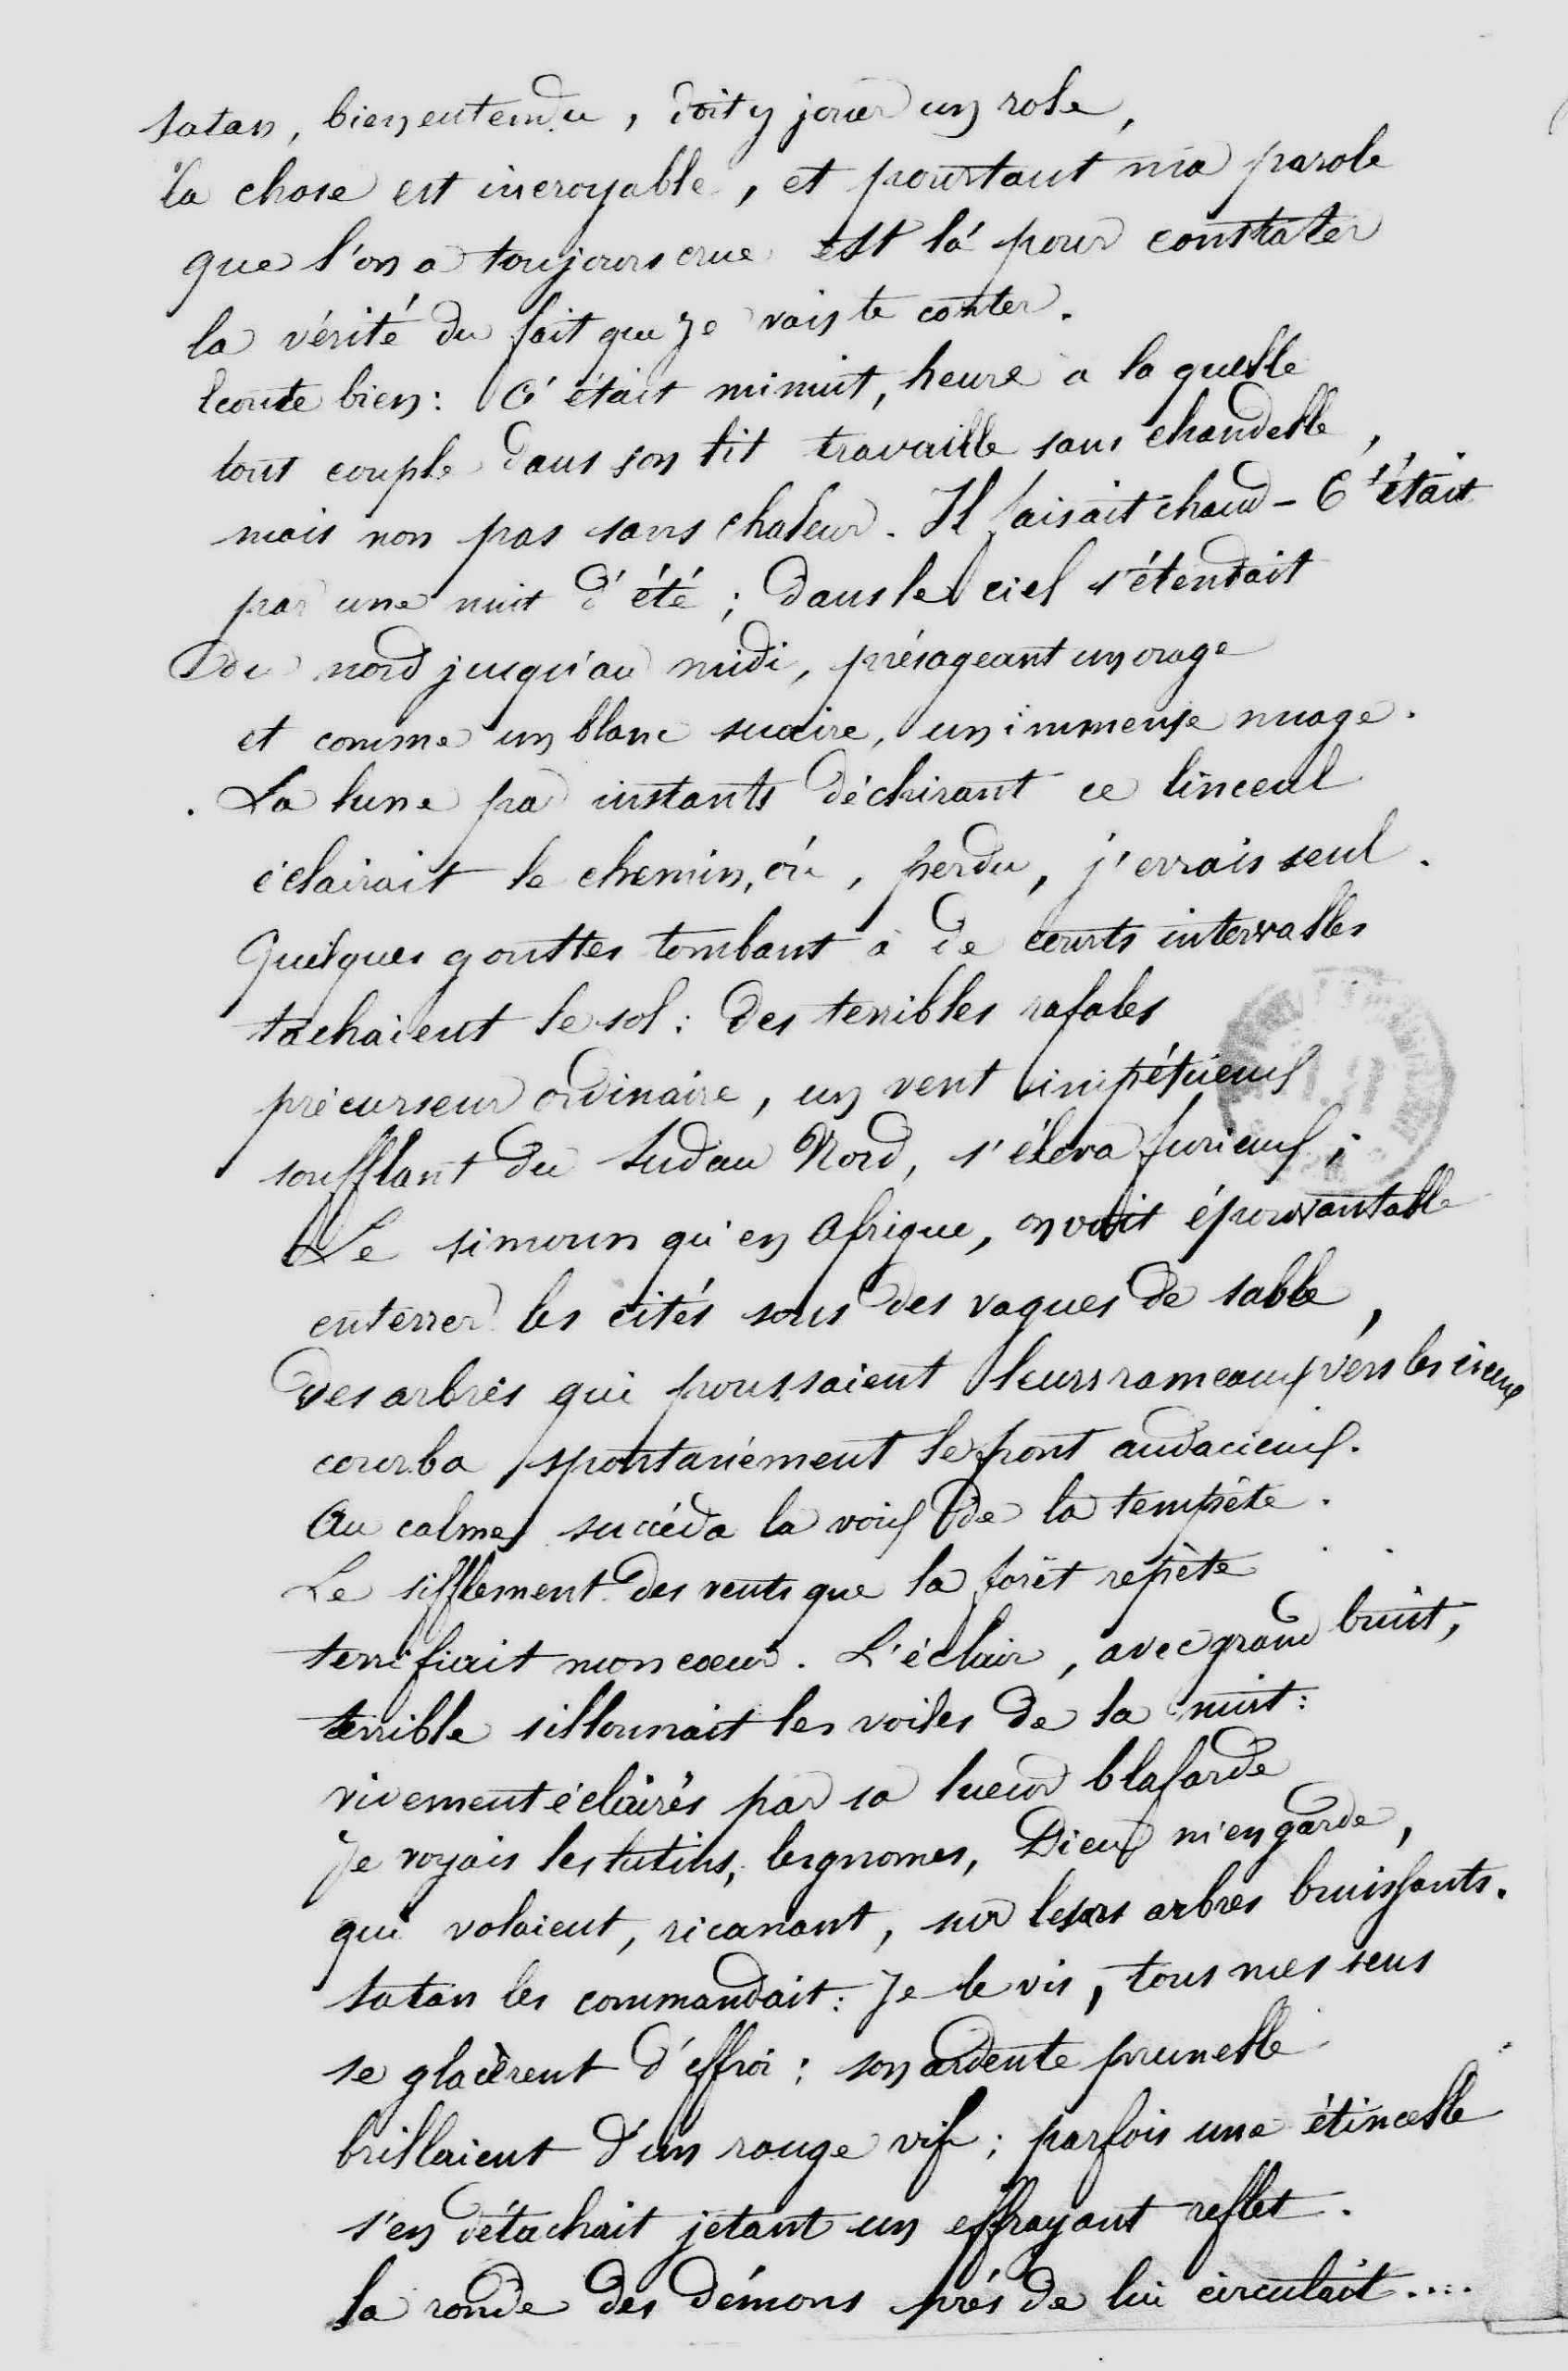 Satan, bien entendu, doit y jouer un role,
la chose est incroyable, et pourtant ma parole
que l'on a toujours crue est là pour constater
la vérité du fait que je vais te conter.
Ecoute bien : C'était minuit, heure a la quelle
tout couple dans son lit travaille sans chandelle,
mais non pas sans chaleur. Il faisait chaud - C'était
par une nuit d'été ; dans le ciel s'étendait
du nord jusqu'au midi, présageant un orage
et comme un blanc suaire, un immense nuage.
La lune par instants déchirant ce linceul
éclairait le chemin, où, perdu, j'errais seul.
Quelques gouttes tombant à de courts intervalles
tachaient le sol : des terribles rafales
précurseur ordinaire, un vent impétueux
soufflant du Sud au Nord, s'éleva furieux ;
Le simoun qu'en Afrique, on voit épouvantable
enterrer les cités sous des vagues de sable,
des arbres qui poussaient leurs rameaux vers les cieux
courba spontanément le front audacieux.
Au calme succéda la voix de la tempête.
Le sifflement des vents que la forêt repète
terrifiait mon cœur. L'éclair, avec grand bruit,
terrible sillonnait les voiles de la nuit :
vivement éclairés par sa lueur blafarde
Je voyais les lutins, les gnomes, Dieu m'en garde,
qui volaient, ricanant, sur les arbres bruissants.
Satan les commandait : Je le vis, tous mes sens
se glacèrent d'effroi : son ardente prunelle
brillaient d'un rouge vif ; parfois une étincelle
s'en détachait jetant un effrayant reflet.
La ronde des démons près de lui circulait....